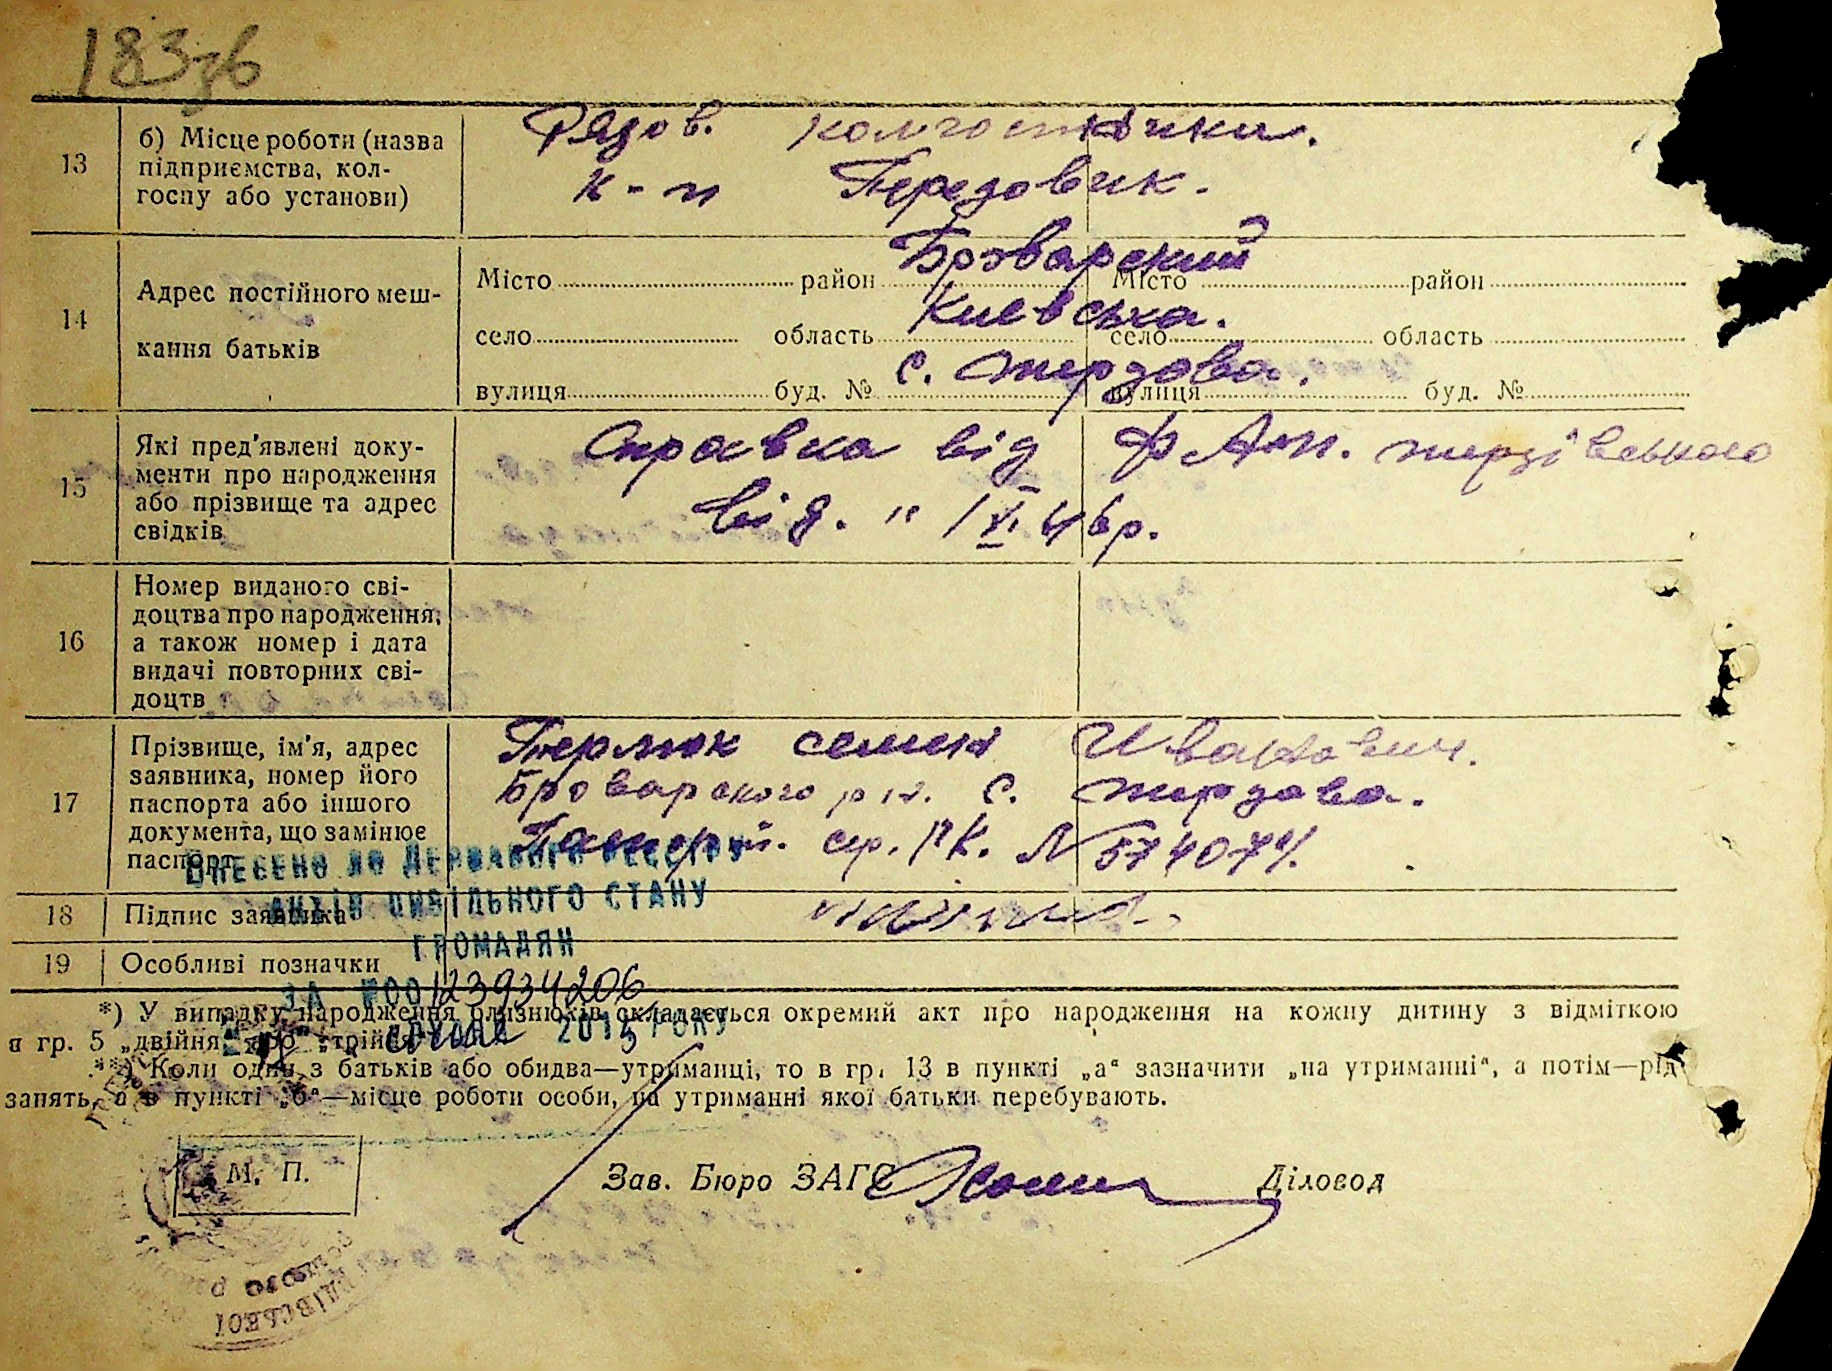 183зв
13
б) Місце роботи (назва
підприємства, кол-
госпу або установи)
Рядов. колгоспники.
к-п Передовик.
14
Адрес постійного меш-
кання батьків
Місто район Броварский Місто район
село область Киевська. село область
вулиця буд. № с. Жердова. вулиця буд. №
15
Які пред'явлені доку-
менти про народження
або прізвище та адрес
свідків
Справка від Жердівського
від. " 1 46р.
16
Номер виданого сві-
доцтва про народження,
а також номер і дата
видачі повторних сві-
доцтв
17
Прізвище, ім'я, адрес
заявника, номер його
паспорта або іншого
документа, що замінює
паспорт
Терлюк семен Иванович.
Броварского р-н. с. Жердова.
сер. № 574074
18
Підпис заявника
19
Особливі позначки
ВНЕСЕНО ДО ДЕРЖАВНОГО РЕЄСТРУ
АКТІВ ЦИВІЛЬНОГО СТАНУ
ГРОМАДЯН
ЗА №00123934206
2015 РОКУ
*) У випадку народження близнюків складається окремий акт про народження на кожну дитину з відміткою
в гр. 5 „двійня" або „трійня".
**) Коли один з батьків або обидва—утриманці, то в гр. 13 в пункті „а" зазначити „на утриманні", а потім—рід
занять, а в пункті „б"—місце роботи особи, на утриманні якої батьки перебувають.
М. П.
Зав. Бюро ЗАГС Діловод